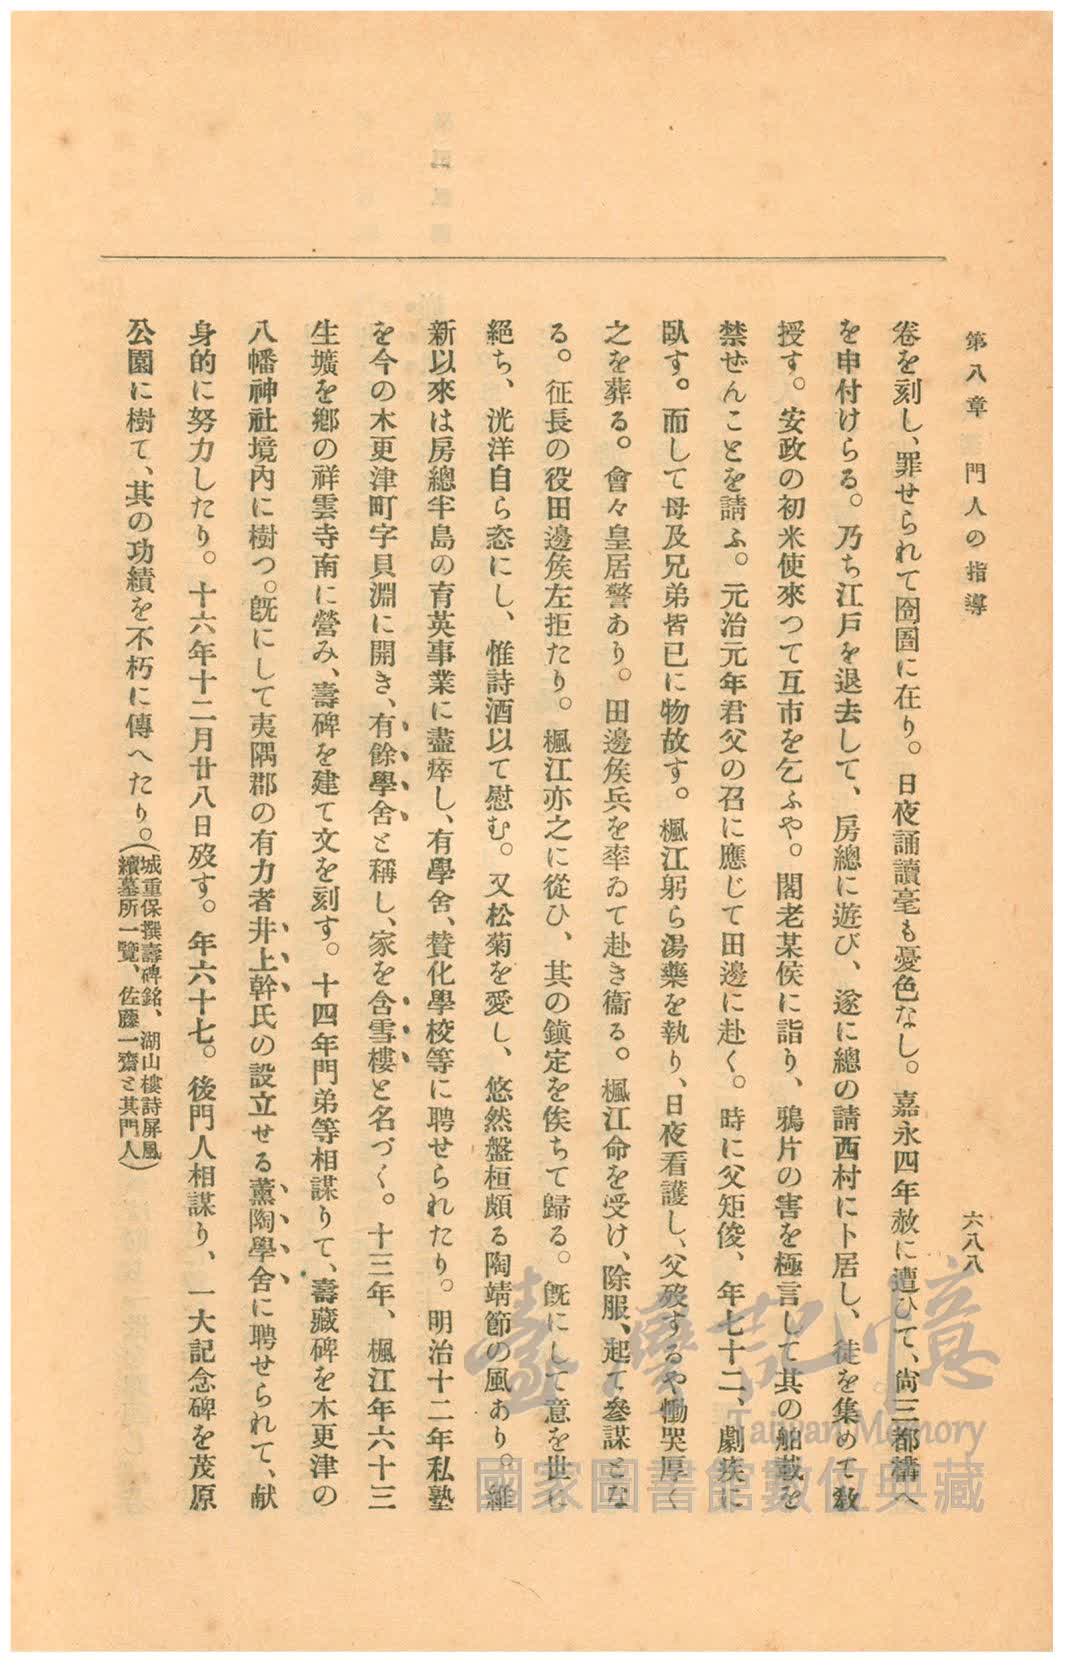 第八章 門人の指導
六八八
卷を刻し、罪せられて囹圄に在り。日夜誦讀毫も憂色なし。嘉永四年赦に遭ひて、尙三都構へ
を申付けらる。乃ち江戶を退去して、房總に遊び、遂に總の請西村に卜居し、徒を集めて敎
授す。安政の初米使來つて互市を乞ふや。閣老某侯に詣り、鴉片の害を極言して其の舶載を
禁ぜんことを請ふ。元治元年君父の召に應じて田邊に赴く。時に父矩俊、年七十二、劇疾に
臥す。而して母及兄弟皆已に物故す。楓江躬ら湯藥を執り、日夜看護し、父歿するや慟哭厚く
之を葬る。會々皇居警あり。田邊矦兵を率ゐて赴き衞る。楓江命を受け、除服、起て參謀とな
る。征長の役田邊矦左拒たり。楓江亦之に從ひ、其の鎭定を俟ちて歸る。旣にして意を世に
絕ち、洸洋自ら恣にし、惟詩酒以て慰む。又松菊を愛し、悠然盤桓頗る陶靖節の風あり。維
新以來は房總半島の育英事業に盡瘁し、有學舍、贊化學校等に聘せられたり。明治十二年私塾
を今の木更津町字貝淵に開き、有餘學舍と稱し、家を含雪樓と名づく。十三年、楓江年六十三
生壙を鄕の祥雲寺南に營み、壽碑を建て文を刻す。十四年門弟等相謀りて、壽藏碑を木更津の
八幡神社境內に樹つ。旣にして夷隅郡の有力者井上幹氏の設立せる薰陶學舍に聘せられて、献
身的に努力したり。十六年十二月廿八日歿す。年六十七。後門人相謀り、一大記念碑を茂原
公園に樹て、其の功績を不朽に傳へたり。(城重保撰壽碑銘、湖山樓詩屛風
續墓所一覽、佐藤一齋と其門人)
臺灣記憶
Taiwan Memory
國家圖書館數位典藏